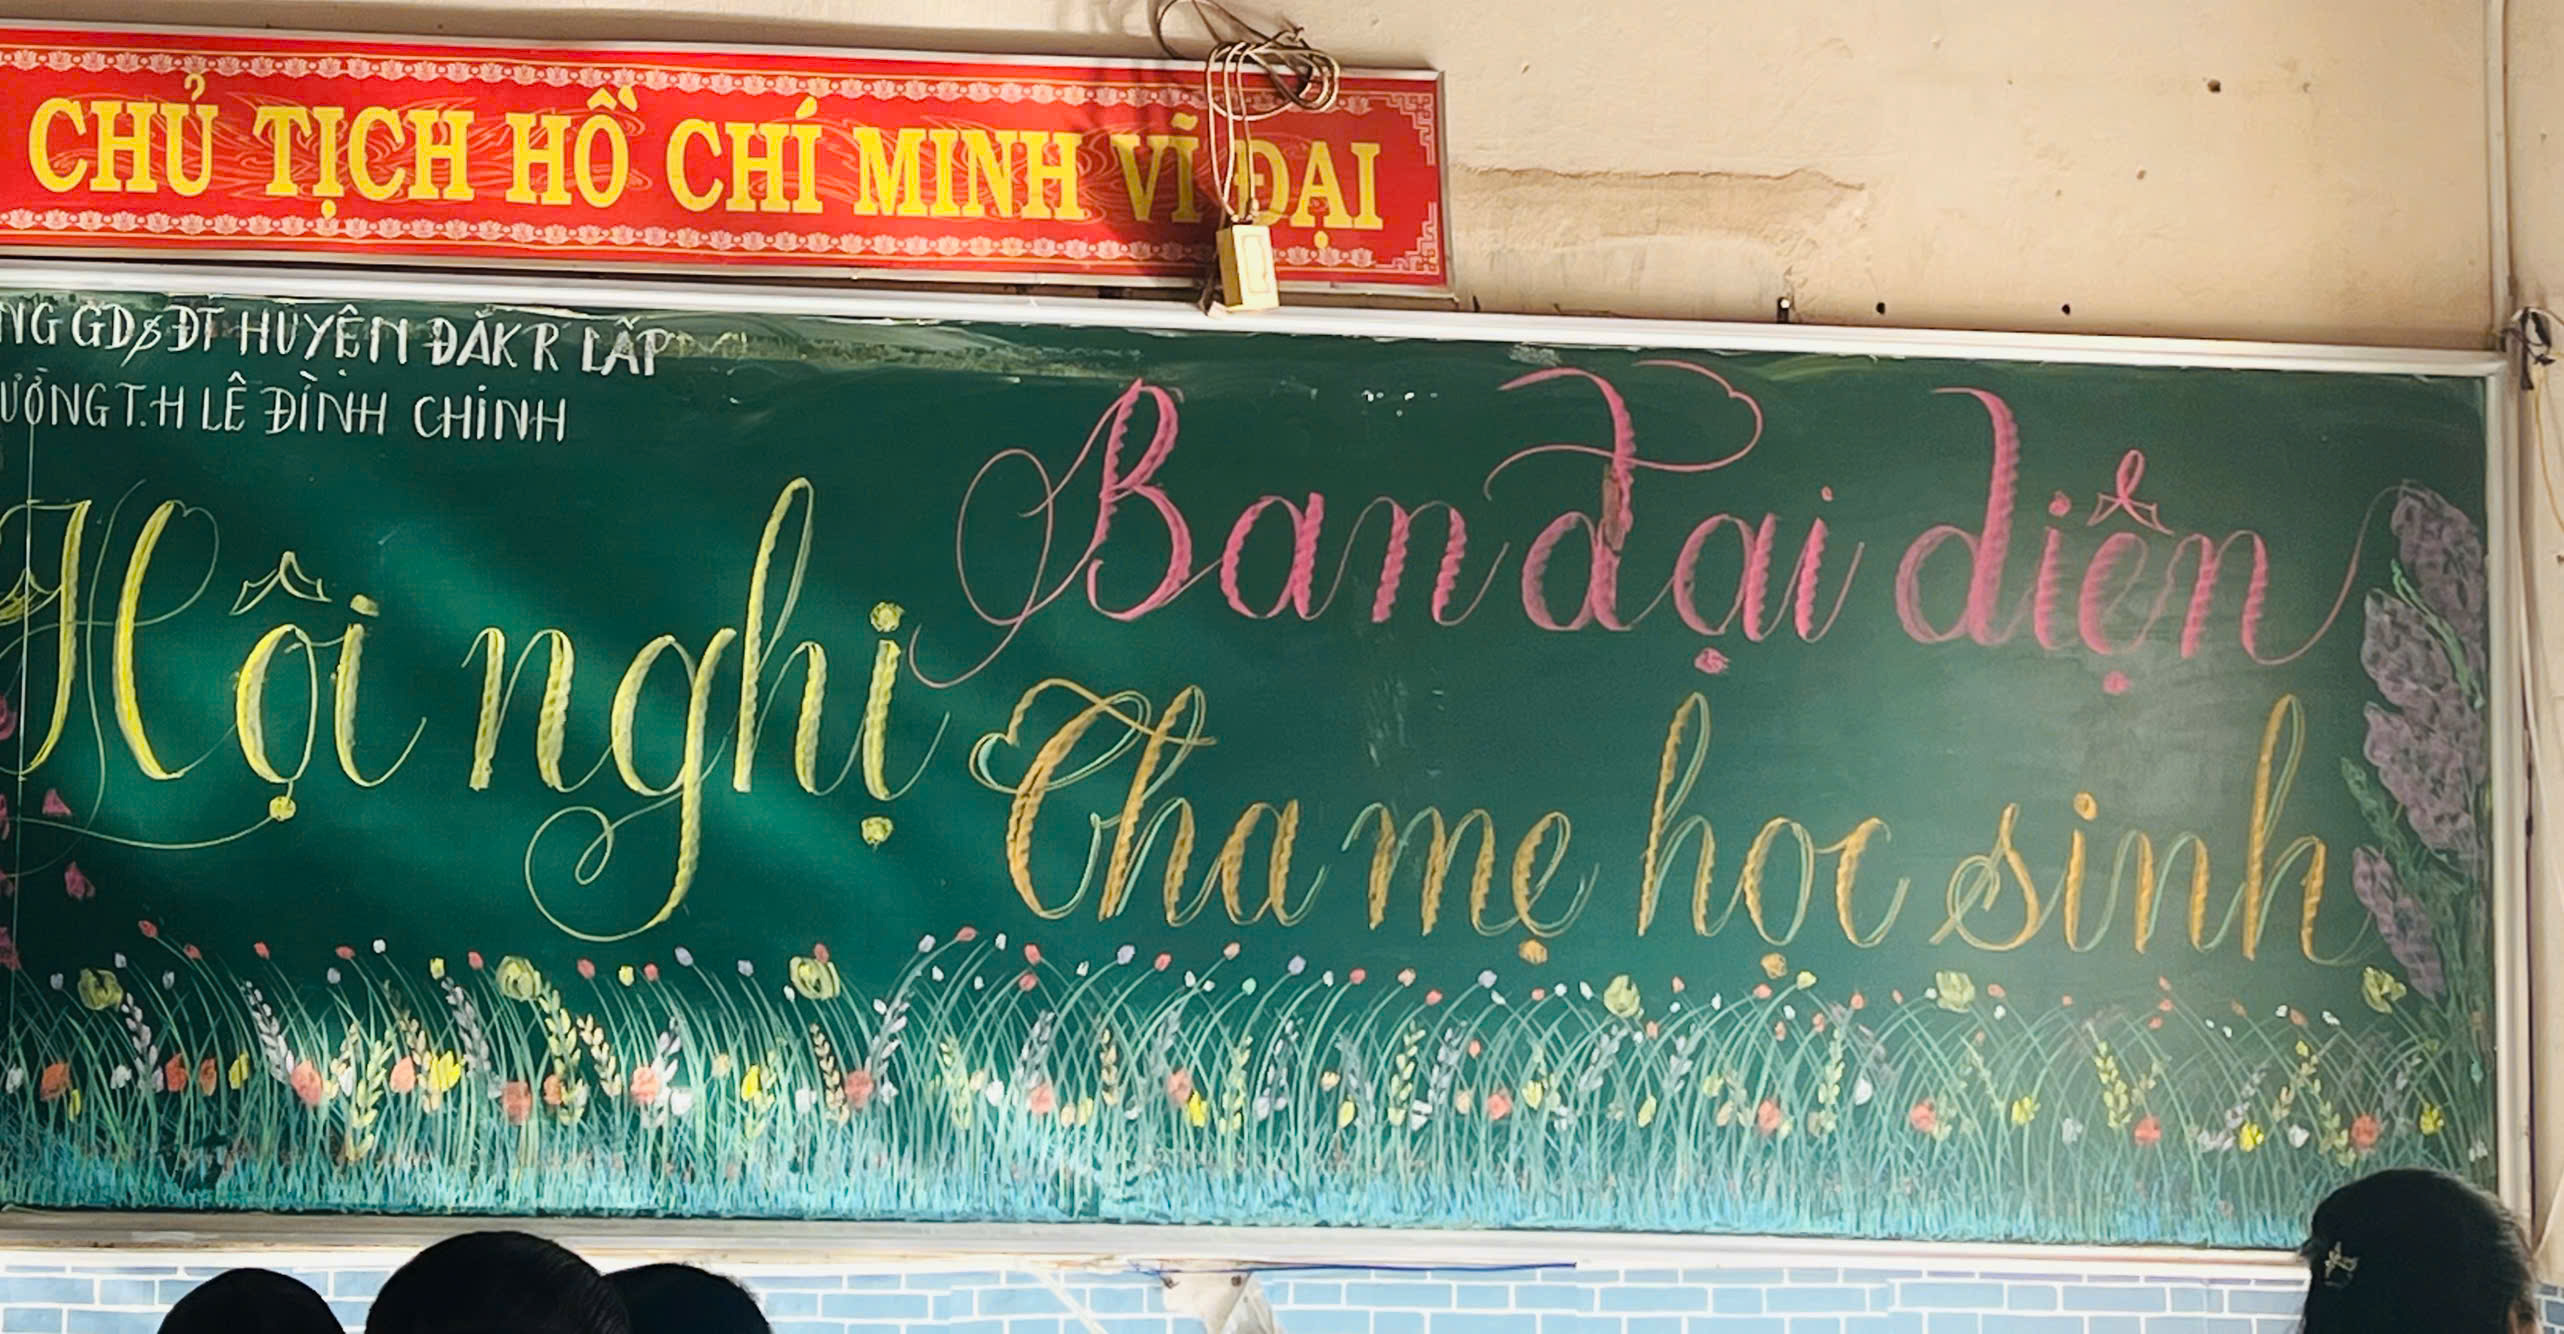 CHỦ TỊCH HỒ CHÍ MINH VĨ ĐẠI
NG GD&ĐT HUYỆN ĐẮK R LẤP
ƯỜNG T.H LÊ ĐÌNH CHINH
Hội nghị
Ban đại diện
Cha mẹ học sinh